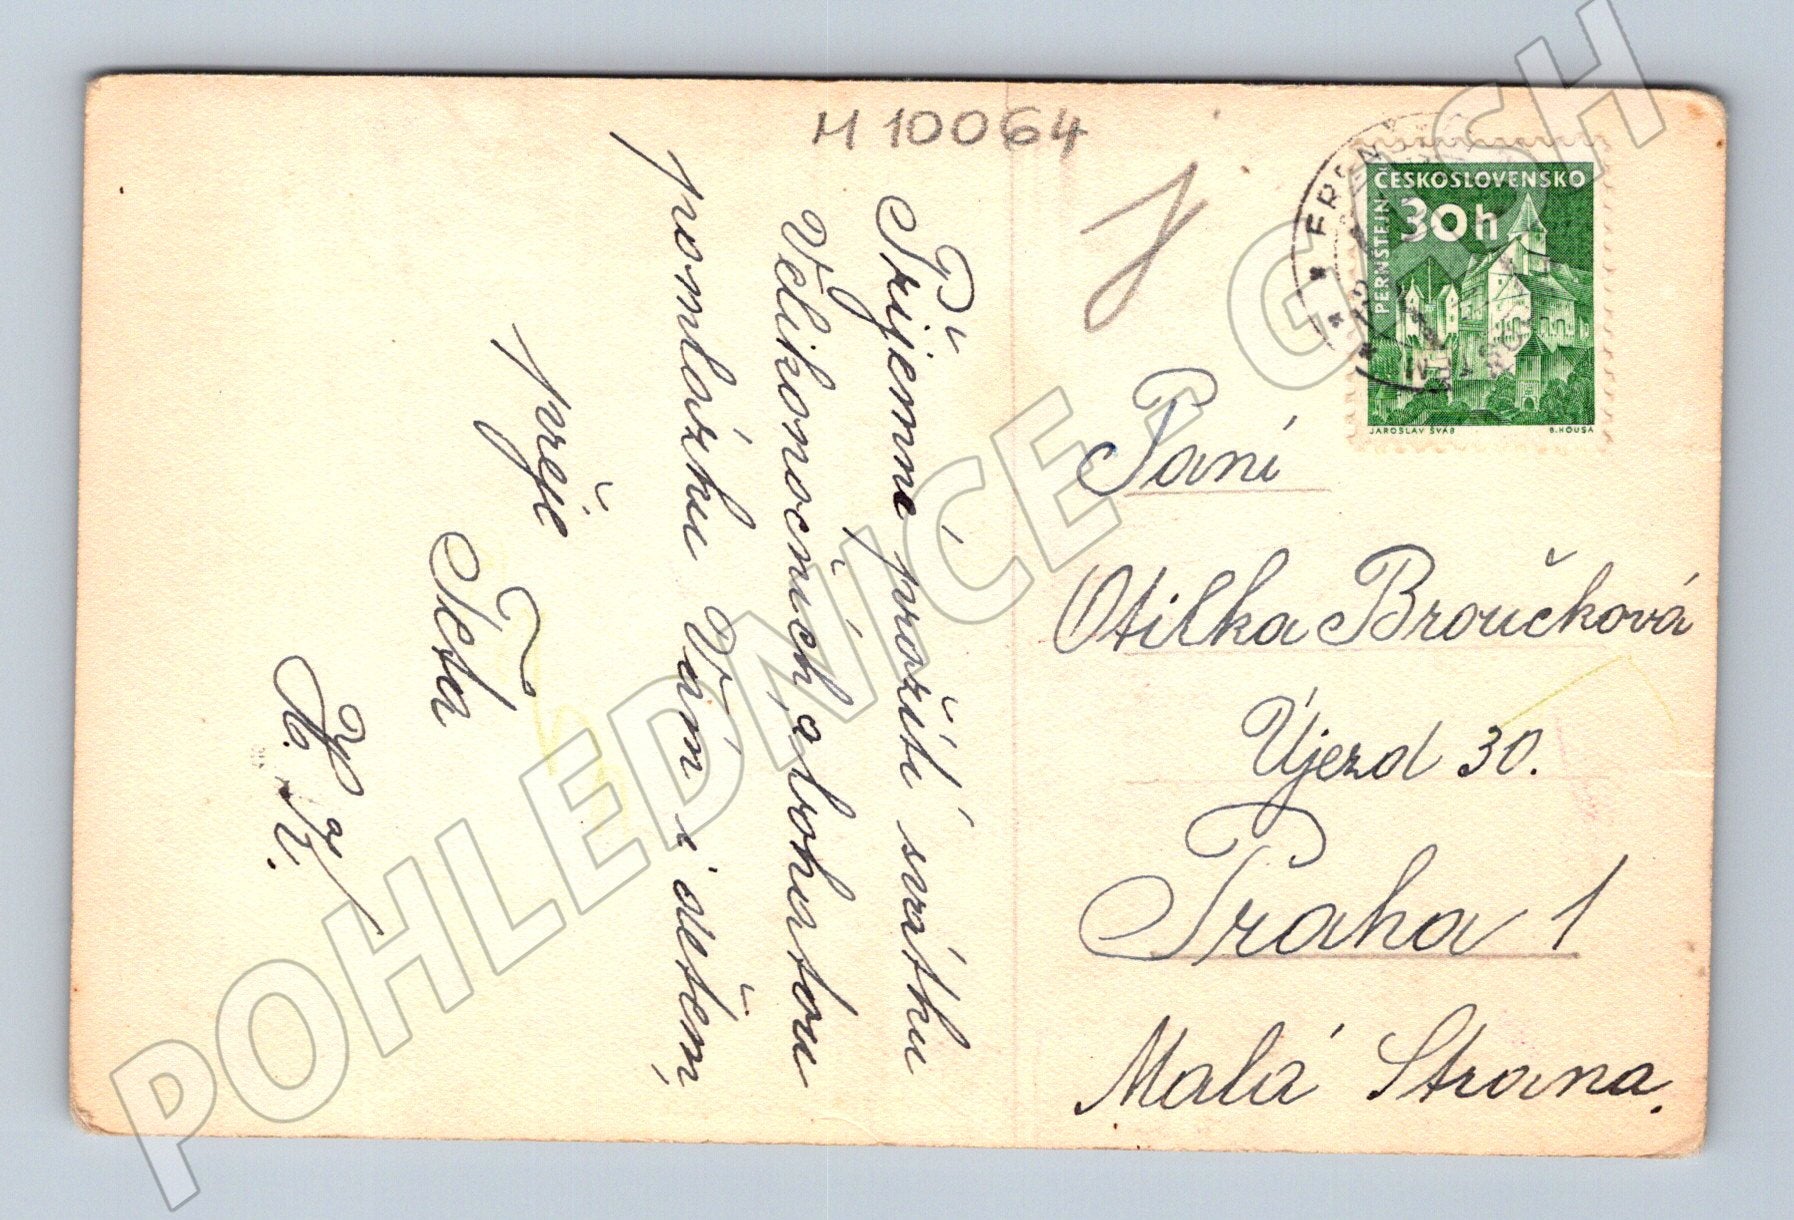 M 10064
Příjemné prožití svátků
Velikonočních, a bohatou
pomlázku Vám i dětem,
přeje
Teta
K.
ČESKOSLOVENSKO
30h
PERNŠTEJN
JAROSLAV ŠVÁB
B. HOUSA
Paní
Otilka Broučková
Újezd 30.
Praha 1
Malá Strana.
POHLEDNICE - GTSH